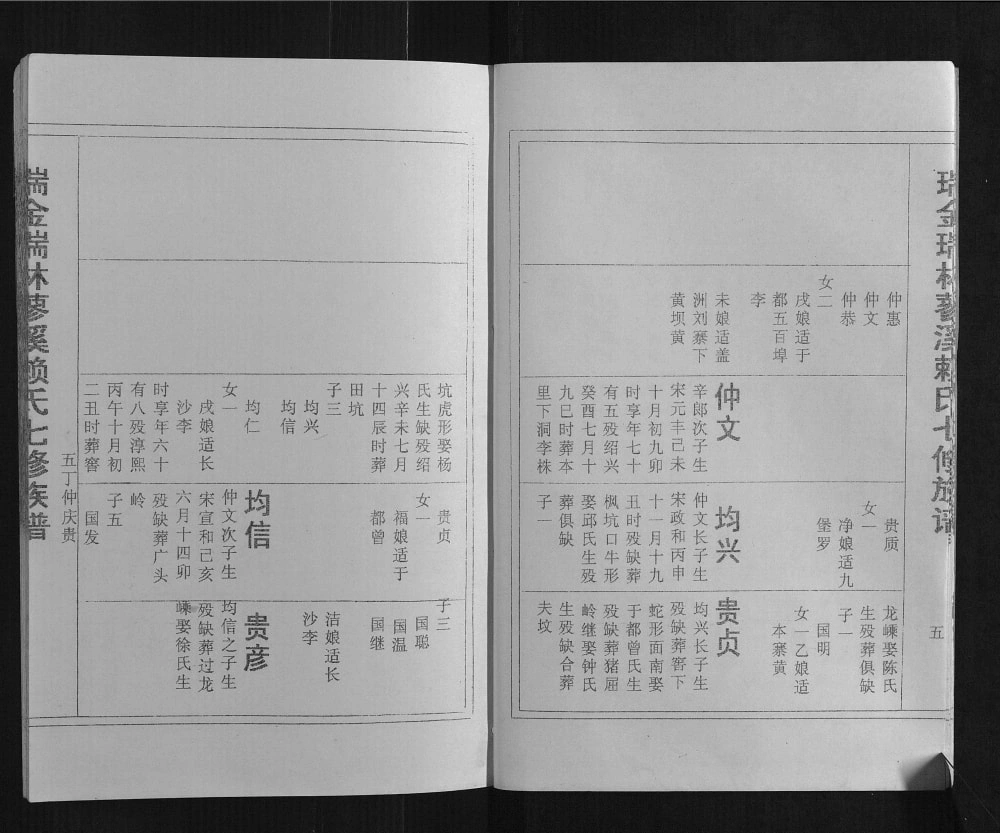 瑞金瑞林蓼溪赖氏七修族谱
五
仲惠
仲文
仲恭
女二
戌娘适于
都五百埠
李
未娘适盖
洲刘寨下
黄坝黄
仲文
辛郎次子生
宋元丰己未
十月初九卯
时享年七十
有五殁绍兴
癸酉七月十
九巳时葬本
里下洞李株
坑虎形娶杨
氏生缺殁绍
兴辛未七月
十四辰时葬
田坑
子三
均兴
均信
均仁
女一
戌娘适长
沙李
贵质
女一
净娘适九
堡罗
均兴
仲文长子生
宋政和丙申
十一月十九
丑时殁缺葬
枫坑口牛形
娶邱氏生殁
葬俱缺
子一
贵贞
女一
福娘适于
都曾
均信
仲文次子生
宋宣和己亥
六月十四卯
时享年六十
有八殁淳熙
丙午十月初
二丑时葬窖
殁缺葬广头
岭
子五
国发
龙嵊娶陈氏
生殁葬俱缺
子一
国明
女一乙娘适
本寨黄
贵贞
均兴长子生
殁缺葬窖下
蛇形面南娶
于都曾氏生
殁缺葬猪屈
岭继娶钟氏
生殁缺合葬
夫坟
子三
国聪
国温
国继
洁娘适长
沙李
贵彦
均信之子生
殁缺葬过龙
嵊娶徐氏生
五丁仲庆贵
瑞金瑞林蓼溪赖氏七修族谱